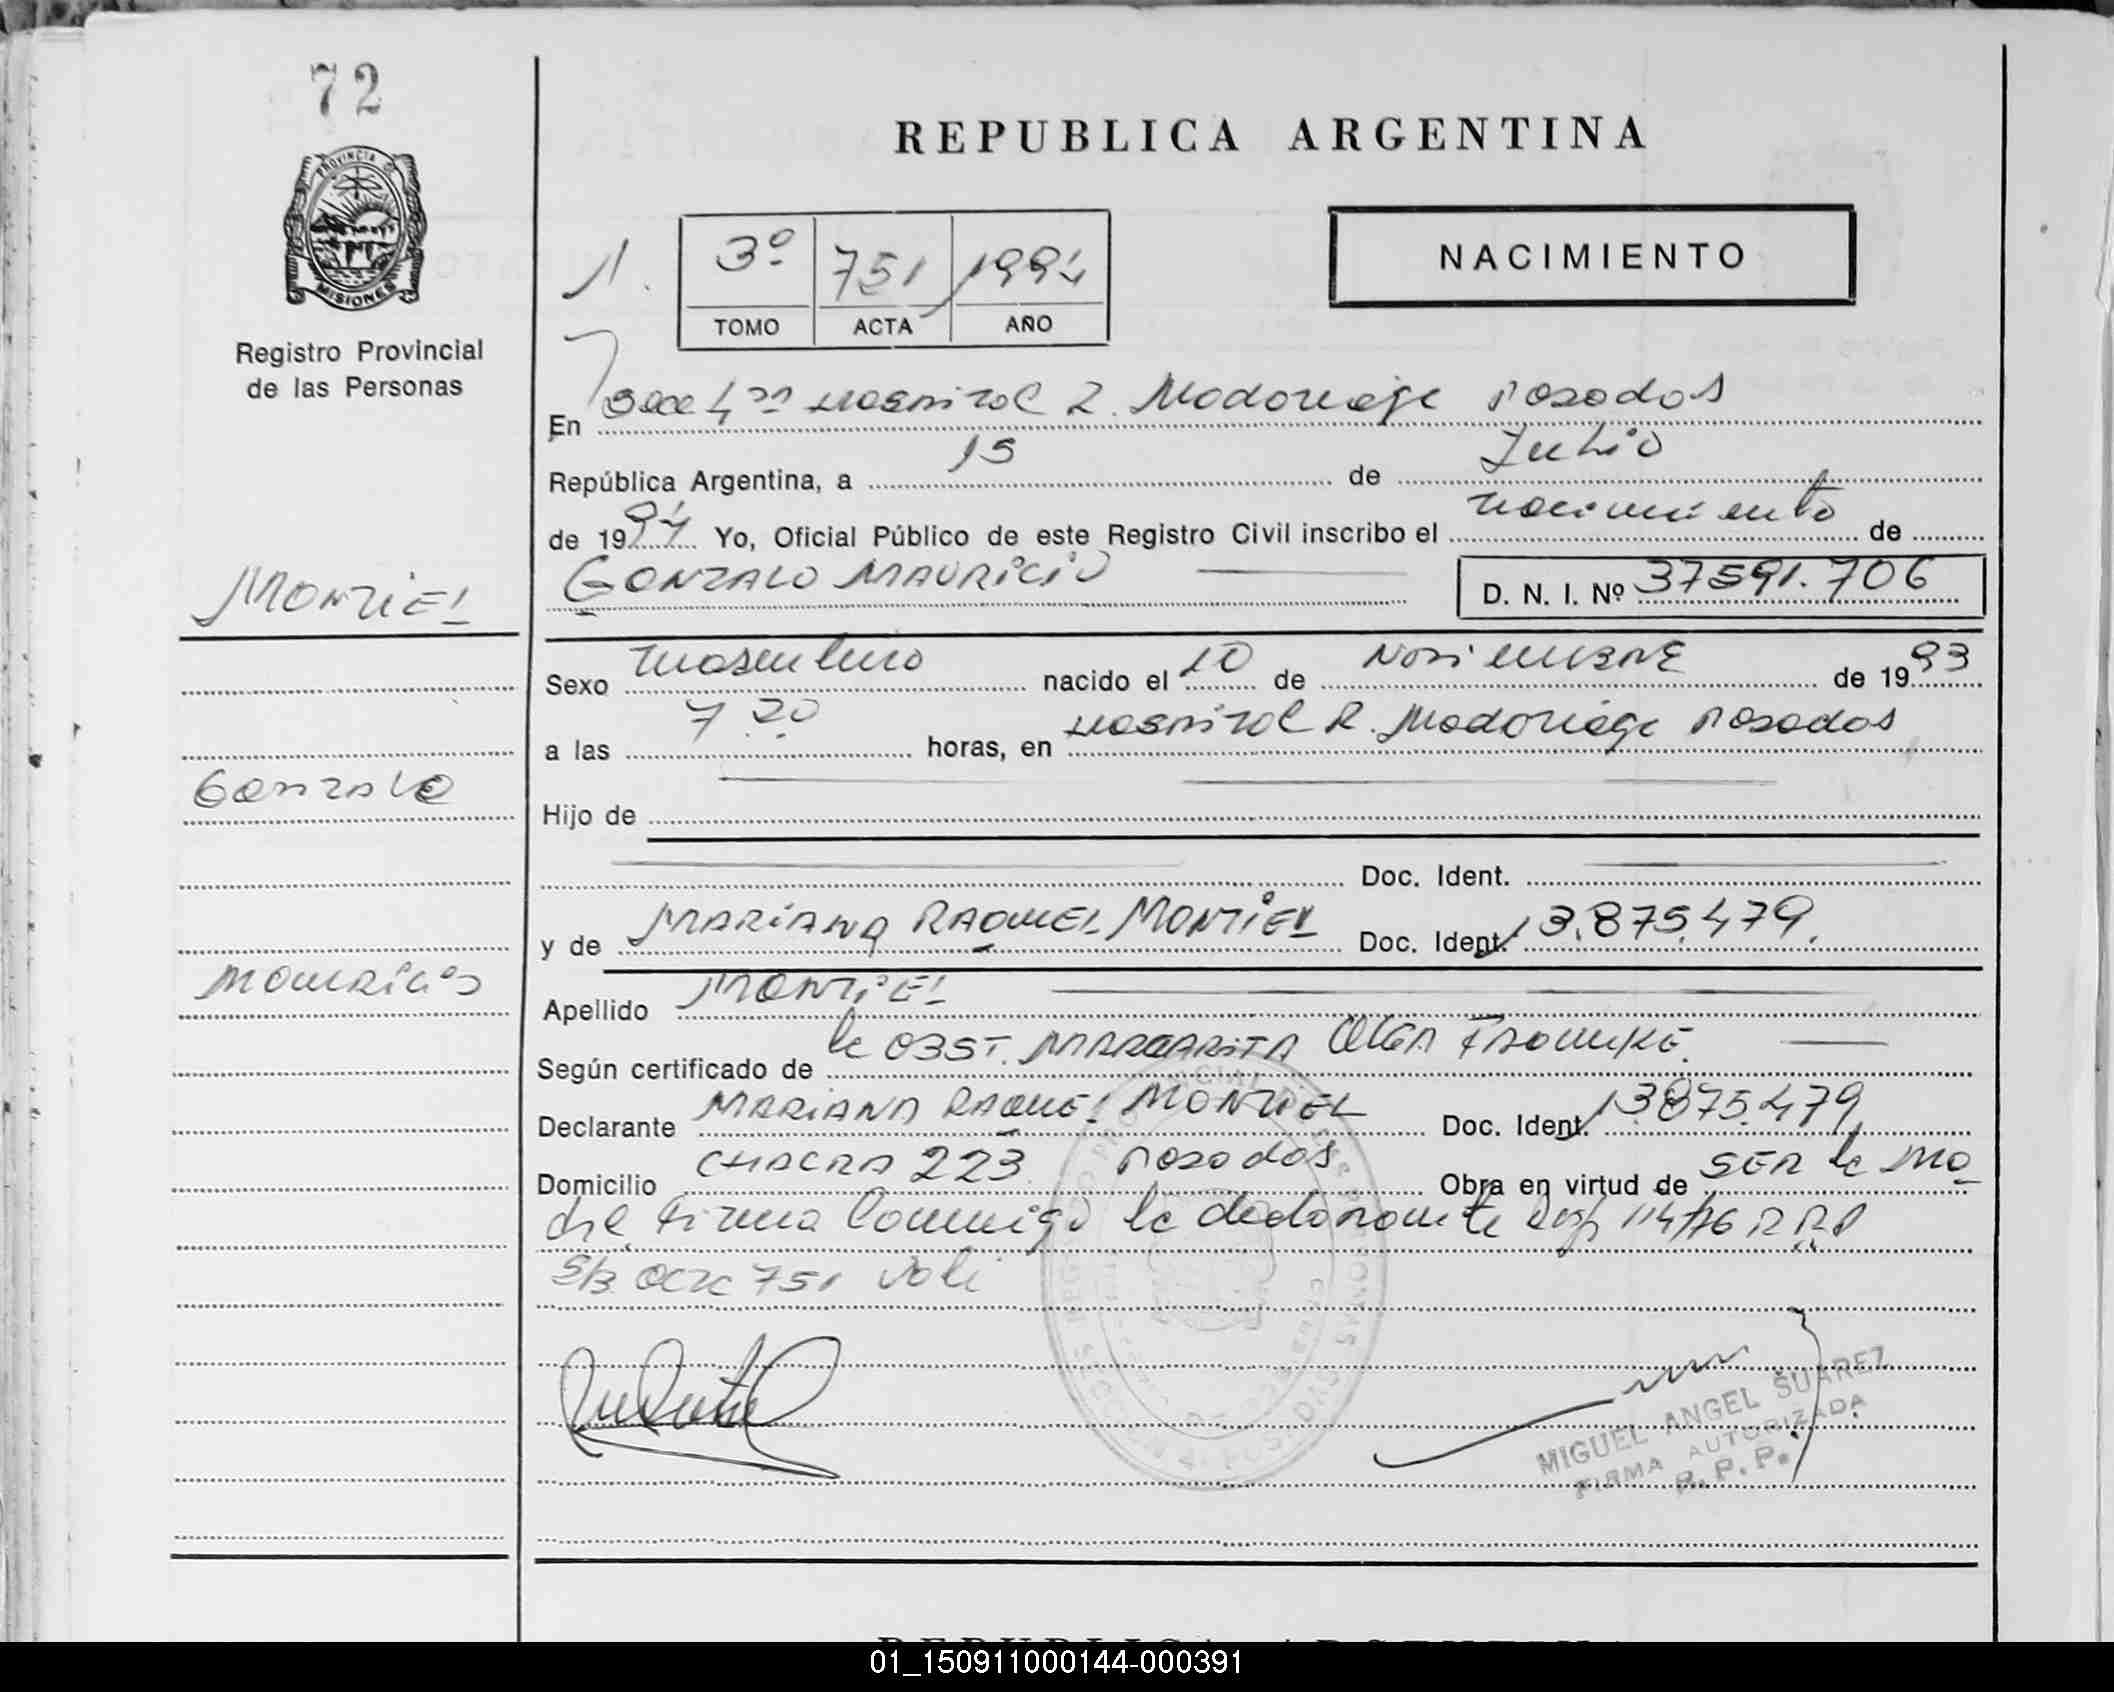 72
PROVINCIA DE
MISIONES
Registro Provincial
de las Personas
REPUBLICA ARGENTINA
1.
3º 751 1994
TOMO ACTA AÑO
NACIMIENTO
En Secc 4ta Hospital R. Madariaga Posadas
República Argentina, a 15 de Julio
de 1994 Yo, Oficial Público de este Registro Civil inscribo el nacimiento de
GONZALO MAURICIO
D. N. I. Nº 37591.706
MONTIEL
Gonzalo
Mauricio
Sexo masculino nacido el 10 de Noviembre de 1993
a las 7 20 horas, en Hospital R. Madariaga Posadas
Hijo de
Doc. Ident.
y de MARIANA RAQUEL MONTIEL Doc. Ident. 13.875.479.
Apellido MONTIEL
Según certificado de la OBST. MARGARITA OLGA
Declarante MARIANA RAQUEL MONTIEL Doc. Ident. 13875.479
Domicilio CHACRA 223 Posadas Obra en virtud de SER la ma
dre firma conmigo la declarante 114/76 R.R.P
S/B acta 751 vale
MIGUEL ANGEL SUAREZ
FIRMA AUTORIZADA
R.P.P.
REPUBLICA ARGENTINA
01_150911000144-000391